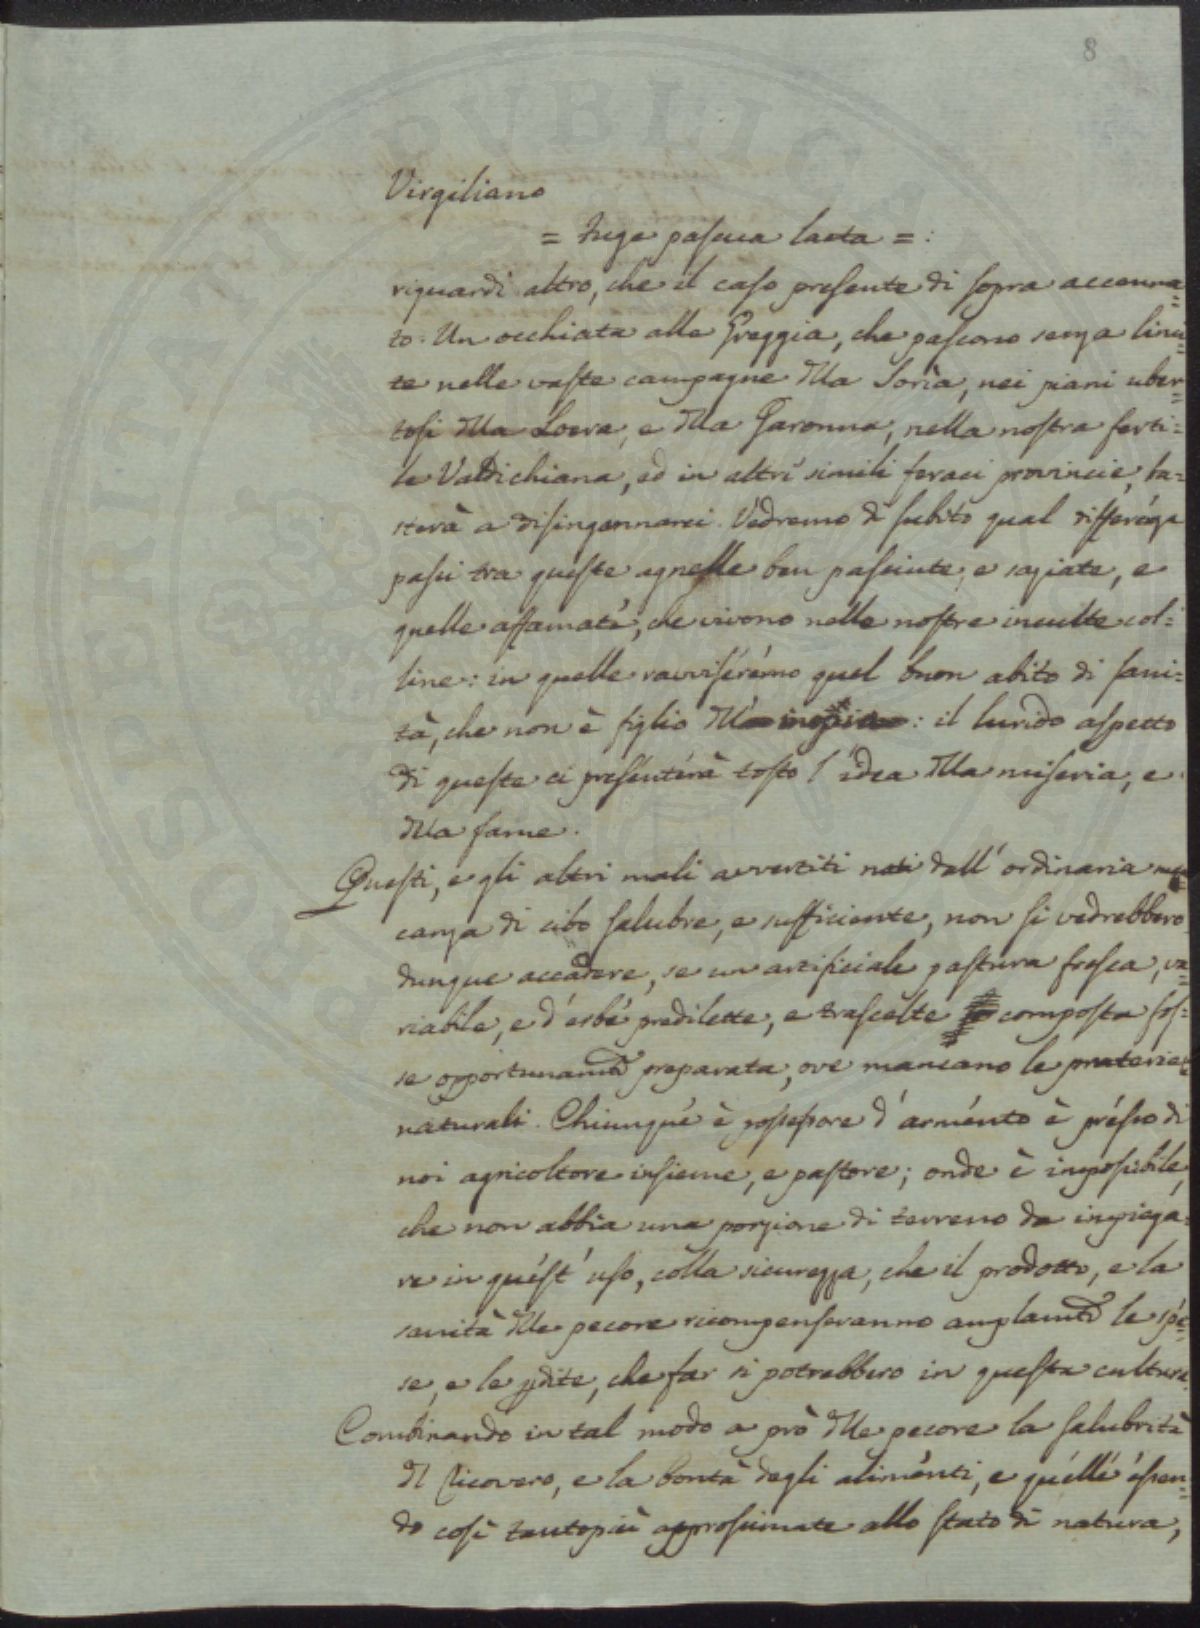 8
Virgiliano
= Fuge pascua laeta = :
riguardi altro, che il caso presente di sopra accenna=
to. Un occhiata alle Greggia, che pascono senza limi=
te nelle vaste campagne dlla Soria, nei piani uber=
tosi dlla Loera, e dlla Garonna, nella nostra ferti=
le Valdichiana, ed in altri simili feraci provincie, ba=
sterà a disingannarci. Vedremo di subito qual differéza
passi tra queste agnelle ben pasciute, e saziate, e
quelle affamate, che vivono nelle nostre inculte col=
line: in quelle ravviseremo quel buon abito di sani=
tà, che non è figlio dlla inopia: il lurido aspetto
di queste ci presenterà tosto l'idea dlla miseria, e
dlla fame.
Questi, e gli altri mali avvertiti nati dall'ordinaria man
canza di cibo salubre, e sufficiente, non si vedrebbero
dunque accadere, se un artificiale pastura fresca, va=
riabile, e d'erbe predilette, e trascelte composta fos=
se opportunamte preparata, ove mancano le praterie
naturali. Chiunque è possessore d'armento è presso di
noi agricoltore insieme, e pastore; onde è impossibile,
che non abbia una porzione di terreno da impiega=
re in quest'uso, colla sicurezza, che il prodotto, e la
sanità dlle pecore ricompenseranno amplamte le spe=
se, e le pdite, che far si potrebbero in questa cultura.
Combinando in tal modo a prò dlle pecore la salubrità
dl Ricovero, e la bontà degli alimenti, e quelle essen=
do così tantopiù approssimate allo stato di natura,
PUBLICA